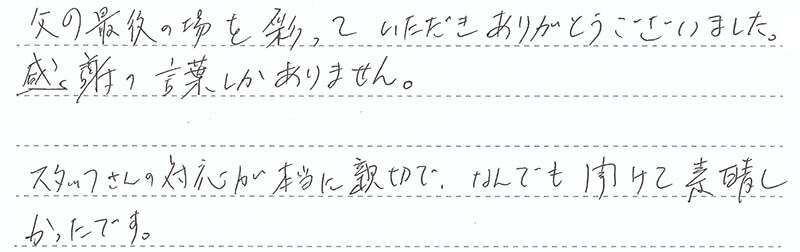 父の最後の場を彩っていただきありがとうございました。
感謝の言葉しかありません。
スタッフさんの対応が本当に親切で、なんでも聞けて素晴し
かったです。